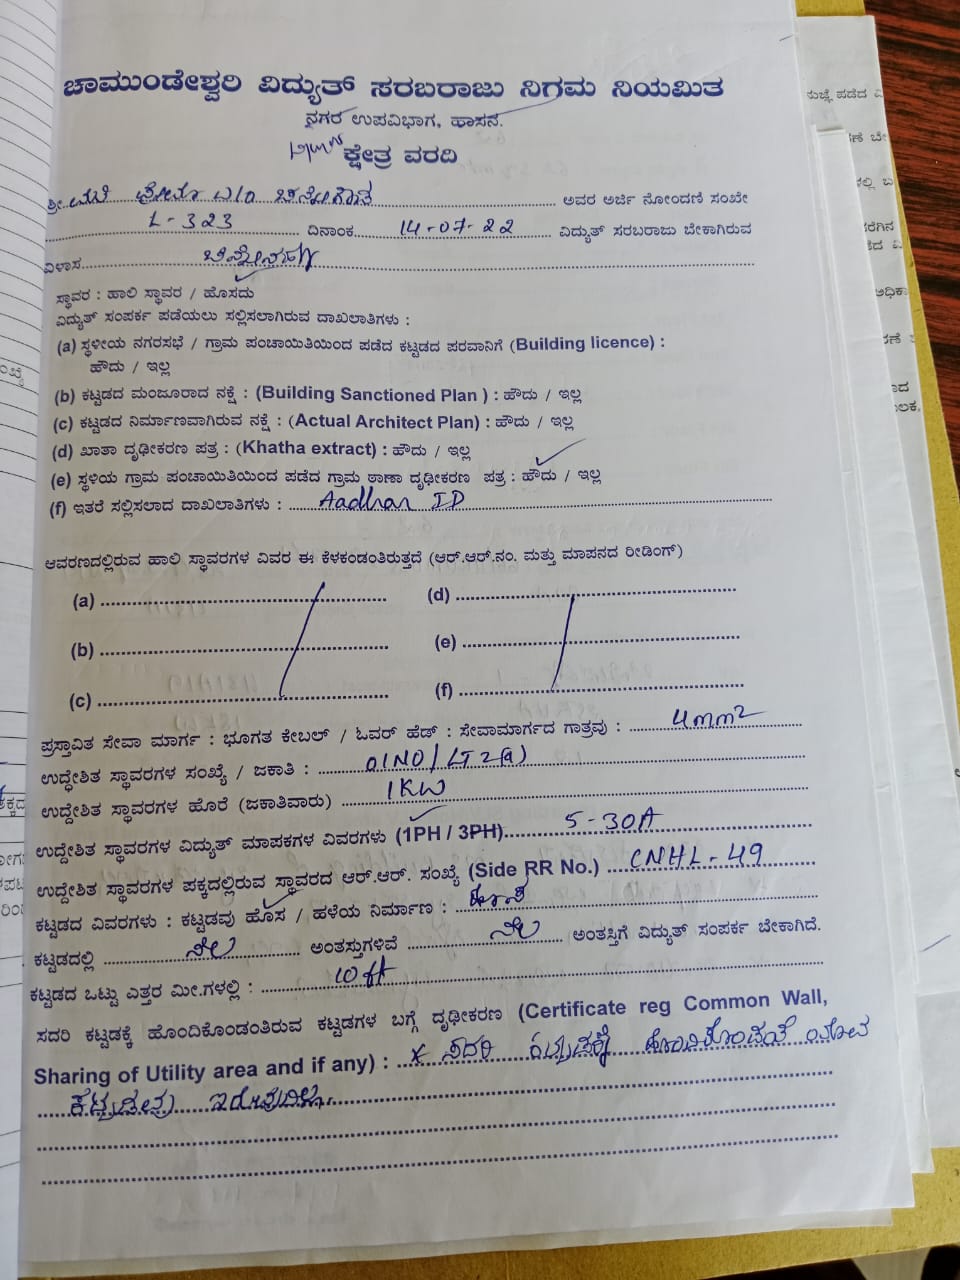 ಚಾಮುಂಡೇಶ್ವರಿ ವಿದ್ಯುತ್ ಸರಬರಾಜು ನಿಗಮ ನಿಯಮಿತ
ನಗರ ಉಪವಿಭಾಗ, ಹಾಸನ.
ಕ್ಷೇತ್ರ ವರದಿ
ಶ್ರೀ ಅವರ ಅರ್ಜಿ ನೋಂದಣಿ ಸಂಖೇ
L-323 ದಿನಾಂಕ 14-07-22 ವಿದ್ಯುತ್ ಸರಬರಾಜು ಬೇಕಾಗಿರುವ
ವಿಳಾಸ
ಸ್ಥಾವರ : ಹಾಲಿ ಸ್ಥಾವರ / ಹೊಸದು
ವಿದ್ಯುತ್ ಸಂಪರ್ಕ ಪಡೆಯಲು ಸಲ್ಲಿಸಲಾಗಿರುವ ದಾಖಲಾತಿಗಳು :
(a) ಸ್ಥಳೀಯ ನಗರಸಭೆ / ಗ್ರಾಮ ಪಂಚಾಯಿತಿಯಿಂದ ಪಡೆದ ಕಟ್ಟಡದ ಪರವಾನಿಗೆ (Building licence) :
ಹೌದು / ಇಲ್ಲ
(b) ಕಟ್ಟಡದ ಮಂಜೂರಾದ ನಕ್ಷೆ : (Building Sanctioned Plan ) : ಹೌದು / ಇಲ್ಲ
(c) ಕಟ್ಟಡದ ನಿರ್ಮಾಣವಾಗಿರುವ ನಕ್ಷೆ : (Actual Architect Plan) : ಹೌದು / ಇಲ್ಲ
(d) ಖಾತಾ ದೃಢೀಕರಣ ಪತ್ರ : (Khatha extract) : ಹೌದು / ಇಲ್ಲ
(e) ಸ್ಥಳಿಯ ಗ್ರಾಮ ಪಂಚಾಯಿತಿಯಿಂದ ಪಡೆದ ಗ್ರಾಮ ಠಾಣಾ ದೃಢೀಕರಣ ಪತ್ರ : ಹೌದು / ಇಲ್ಲ
(f) ಇತರೆ ಸಲ್ಲಿಸಲಾದ ದಾಖಲಾತಿಗಳು : Aadhar ID
ಆವರಣದಲ್ಲಿರುವ ಹಾಲಿ ಸ್ಥಾವರಗಳ ವಿವರ ಈ ಕೆಳಕಂಡಂತಿರುತ್ತದೆ (ಆರ್.ಆರ್.ನಂ. ಮತ್ತು ಮಾಪನದ ರೀಡಿಂಗ್)
(a) (d)
(b) (e)
(c) (f)
ಪ್ರಸ್ತಾವಿತ ಸೇವಾ ಮಾರ್ಗ : ಭೂಗತ ಕೇಬಲ್ / ಓವರ್ ಹೆಡ್ : ಸೇವಾಮಾರ್ಗದ ಗಾತ್ರವು : 4mm2
ಉದ್ಧೇಶಿತ ಸ್ಥಾವರಗಳ ಸಂಖ್ಯೆ / ಜಕಾತಿ : 01NO/LT2(a)
ಉದ್ದೇಶಿತ ಸ್ಥಾವರಗಳ ಹೊರೆ (ಜಕಾತಿವಾರು) 1KW
ಉದ್ದೇಶಿತ ಸ್ಥಾವರಗಳ ವಿದ್ಯುತ್ ಮಾಪಕಗಳ ವಿವರಗಳು (1PH / 3PH) 5-30A
ಉದ್ದೇಶಿತ ಸ್ಥಾವರಗಳ ಪಕ್ಕದಲ್ಲಿರುವ ಸ್ಥಾವರದ ಆರ್.ಆರ್. ಸಂಖ್ಯೆ (Side RR No.) CNHL-49
ಕಟ್ಟಡದ ವಿವರಗಳು : ಕಟ್ಟಡವು ಹೊಸ / ಹಳೆಯ ನಿರ್ಮಾಣ :
ಕಟ್ಟಡದಲ್ಲಿ ನೆಲ ಅಂತಸ್ತುಗಳಿವೆ ನೆಲ ಅಂತಸ್ತಿಗೆ ವಿದ್ಯುತ್ ಸಂಪರ್ಕ ಬೇಕಾಗಿದೆ.
ಕಟ್ಟಡದ ಒಟ್ಟು ಎತ್ತರ ಮೀ.ಗಳಲ್ಲಿ : 10 ft
ಸದರಿ ಕಟ್ಟಡಕ್ಕೆ ಹೊಂದಿಕೊಂಡಂತಿರುವ ಕಟ್ಟಡಗಳ ಬಗ್ಗೆ ದೃಢೀಕರಣ (Certificate reg Common Wall,
Sharing of Utility area and if any) : ಸದರಿ ಕಟ್ಟಡಕ್ಕೆ
ಇರುವುದಿಲ್ಲ.